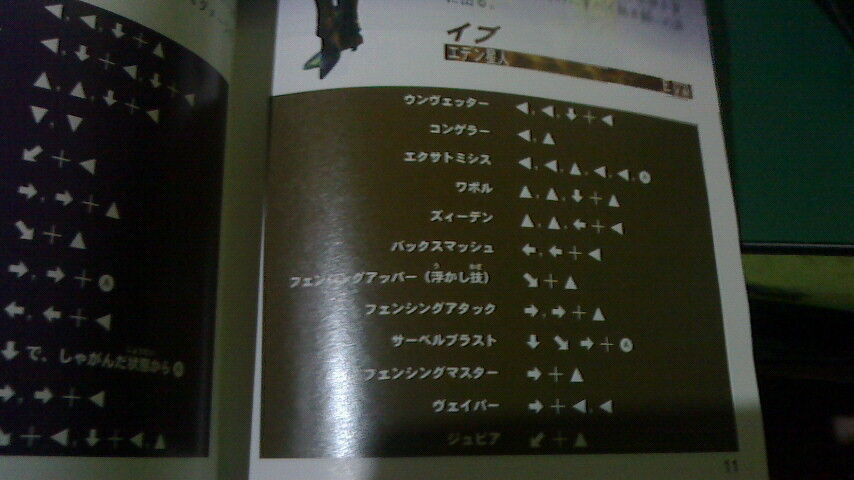 ◀、◀、⬇+▲
◀、⬇+◀、⬇+◀
▲、▲、⬇+◀
▼、▼
⬋+◀
➡、➡+▲
⬊+▲
➡、➡+Ⓐ
⬅、⬅+◀
⬇で、しゃがんだ状態からⒶ
➡、➡+◀
⬊+◀、⬇+◀、▲
イブ
エデン星人
ウンヴェッター ◀、◀、⬇+◀
コンゲラー ◀、▲
エクサトミシス ◀、◀、▲、◀、◀、Ⓐ
ワポル ▲、▲、⬇+▲
ズィーデン ▲、▲、⬅+◀
バックスマッシュ ⬅、⬅+◀
フェンシングアッパー(浮かし技) ⬊+▲
フェンシングアタック ➡、➡+▲
サーベルブラスト ⬇ ⬊ ➡+Ⓐ
フェンシングマスター ➡+▲
ヴェイパー ➡+◀、◀
ジュピア ⬋+▲
11